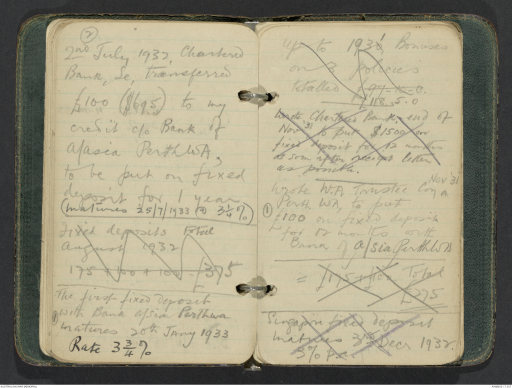 (2)
2nd July 1932, Chartered
Bank, Se, transferred
£100 ($695) to my
credit c/o Bank of
A/asia Perth WA,
to be put on fixed
deposit for 1 year
(matures 25/7/1933 @ 3¼%)
Fixed deposits total
August 1932
175 + 100 + 100 = £375
The first fixed deposit
with Bank a/sia Perthwa
matures 20th Jany 1933
Rate 3¾%
up to 1930 Bonuses
on 3 policies
totalled
118.5.0
Wrote Chartered Bank, end of
Nov 31 to put $1500 on
fixed deposit for 12 months
as soon after receipt letter
as possible.
Wrote W.A. Trustee Coy Nov 31
Perth WA to put
(1) £100 on fixed deposit
for 12 months with
Bank of A/sia Perth WA
= £175 + 100 Total
£275
Singapore fixed deposit
matures 3rd Decr 1932.
3%